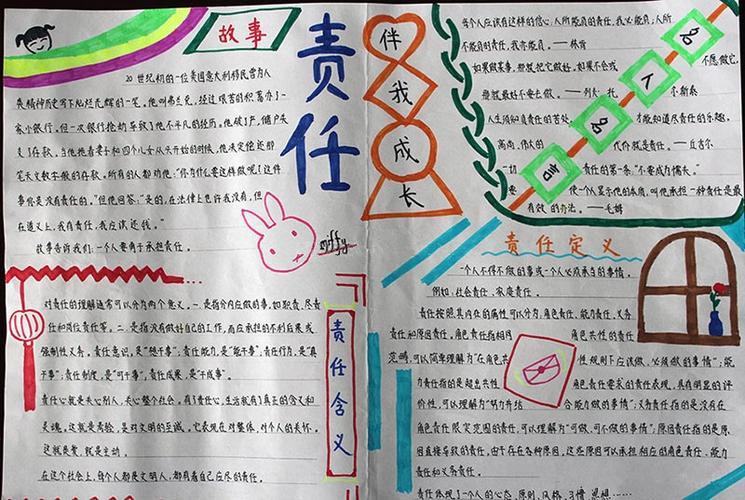 故事
责任
20世纪初的一位美国意大利移民曾为人
类精神历史写下灿烂光辉的一笔。他叫弗兰克，经过艰苦的积蓄办了一
家小银行。但一次银行抢劫导致了他不平凡的经历。他破了产，储户失
去了存款。当他拖着妻子和四个儿女从头开始的时候，他决定偿还那
笔天文数字般的存款。所有的人都劝他："你为什么要这样做呢？这件
事你是没有责任的。"但他回答："是的，在法律上也许我没有，但
在道义上，我有责任，我应该还钱。"
故事告诉我们：一个人要勇于承担责任。
miffy
对责任的理解通常可以分为两个意义。一是指分内应做的事，如职责、尽责
任和岗位责任等。二是指没有做好自己的工作，而应承担的不利后果或
强制性义务。责任意识，是"想干事"；责任能力，是"能干事"；责任行为，是"真
干事"；责任制度，是"可干事"；责任成果，是"干成事"。
责任心就是关心别人，关心整个社会。有了责任心，生活就有了真正的含义和
灵魂。这就是考验，是对文明的至诚。它表现在对整体，对个人的关怀。
这就是爱，就是主动。
在这个社会上，每个人都是文明人，都有着自己应尽的责任。
责任含义
伴我成长
每个人应该有这样的信心：人所能负的责任，我必能负；人所
不能负的责任，我亦能负。——林肯
如果做某事，那就把它做好。如果不会或
不愿做它，
那就最好不要去做。——列夫·托
尔斯泰
人生须知负责任的苦处，
才能知道尽责任的乐趣。
高尚、伟大的
代价就是责任。——丘吉尔
一切
责任的第一条："不要成为懦夫。"
使一个人显示他的本质，叫他承担一种责任是最
有效的办法。——毛姆
名人名言
责任定义
一个人不得不做的事或一个人必须承当的事情。
例如：社会责任、家庭责任。
责任按照其内在的属性可以分为，角色责任、能力责任、义务
责任和原因责任。角色责任指相同
角色共性的责任
范畴，可以简单理解为"在角色共
性规则下应该做、必须做的事情"；能
力责任指的是超出共性
角色责任要求的责任表现，具有明显的评
价性，可以理解为"努力并结
合能力做的事情"；义务责任指的是没有在
角色责任限定范围的责任，可以理解为"可做、可不做的事情"；原因责任指的是原
因直接导致的责任，由于存在各种原因，这些原因可以承担相应的角色责任、能力
责任和义务责任。
责任体现了一个人的心态、原则、风格、习惯、思想……